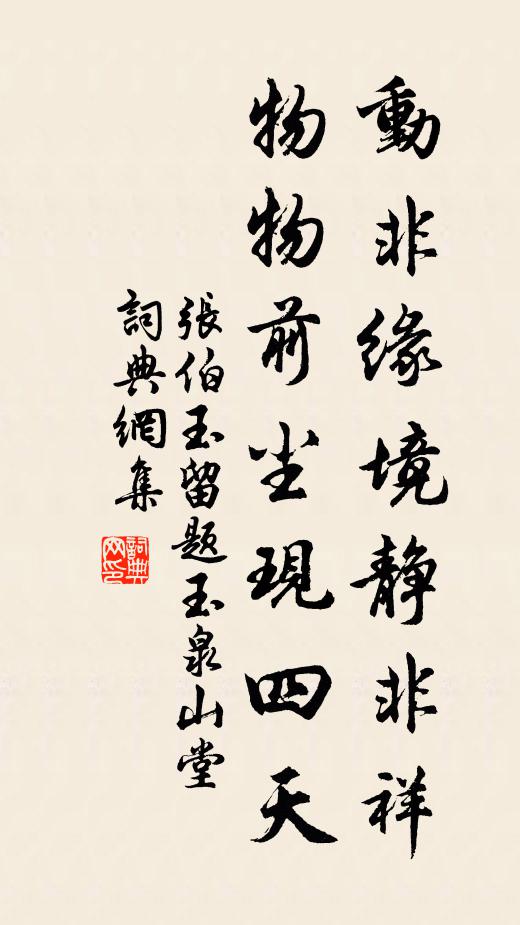 動非緣境靜非祥
物物前尘現四天
張伯玉留題玉泉山堂
詞典網集
詞典网印